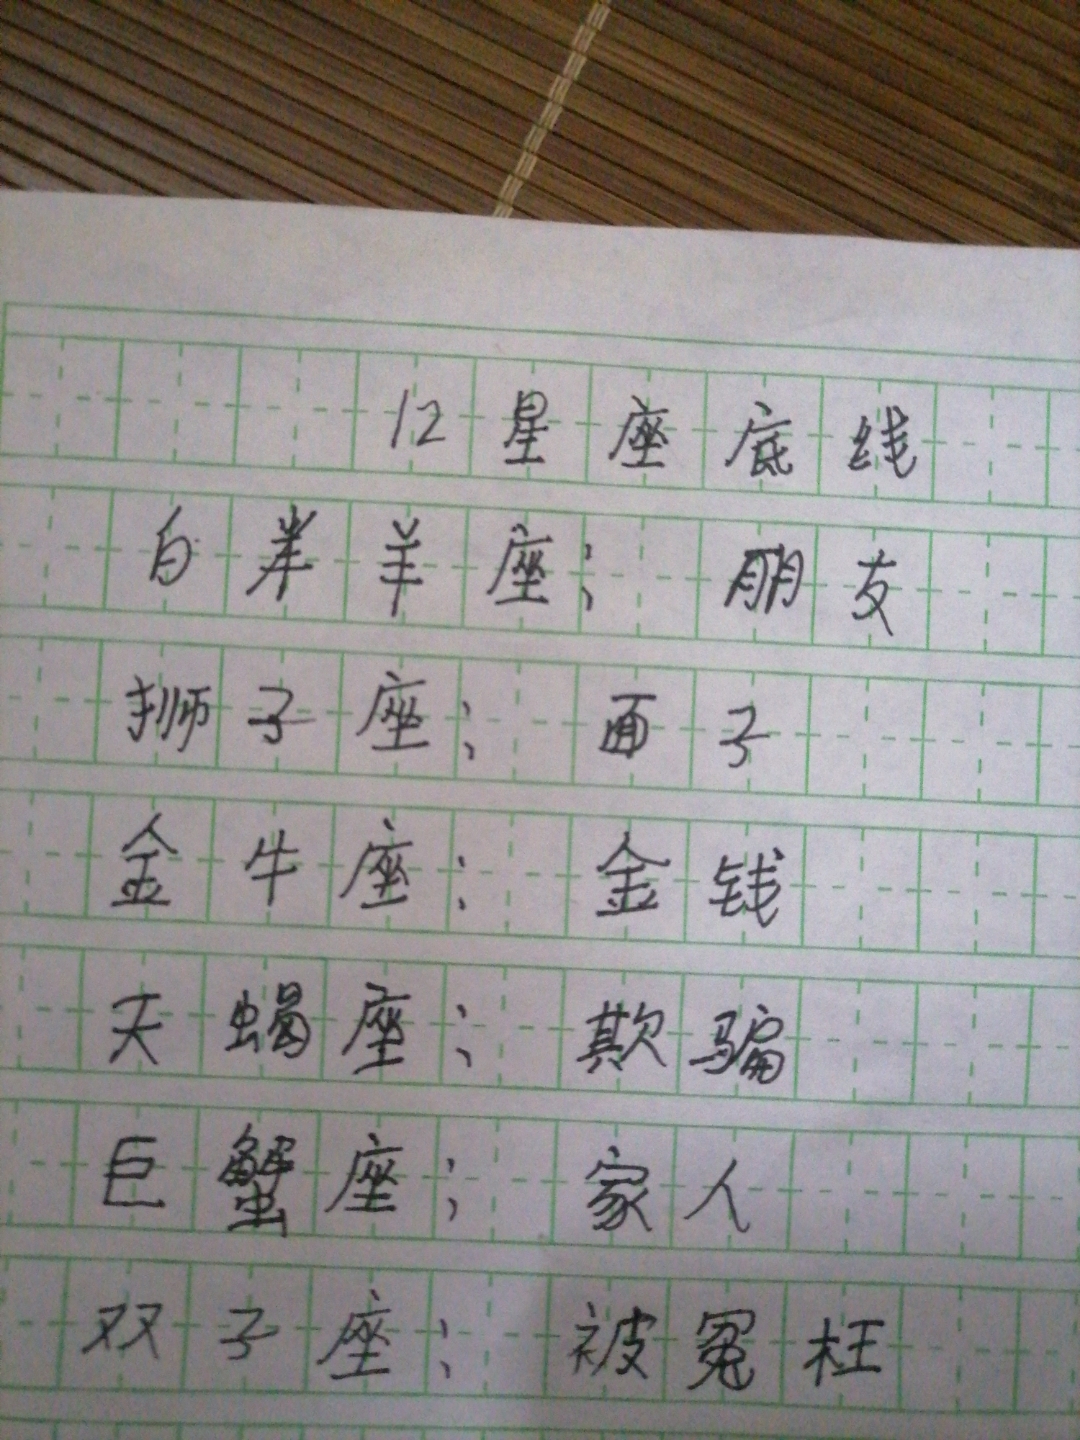 12星座底线
白羊羊座: 朋友
狮子座: 面子
金牛座: 金钱
天蝎座: 欺骗
巨蟹座: 家人
双子座: 被冤枉